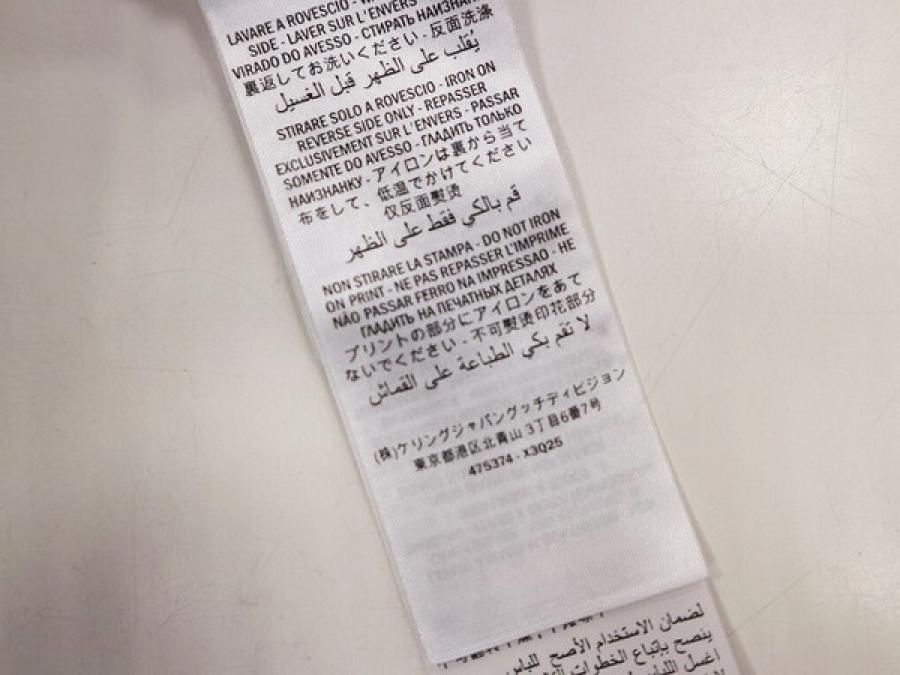 LAVARE A ROVESCIO -
SIDE - LAVER SUR L'ENVERS
VIRADO DO AVESSO - СТИРАТЬ НАИЗН
裏返してお洗いください - 反面洗涤
يُقلب على الظهر قبل الغسيل
STIRARE SOLO A ROVESCIO - IRON ON
REVERSE SIDE ONLY - REPASSER
EXCLUSIVEMENT SUR L'ENVERS - PASSAR
SOMENTE DO AVESSO - ГЛАДИТЬ ТОЛЬКО
НАИЗНАНКУ - アイロンは裏から当て
布をして、低温でかけてください
仅反面熨烫
قم بالكي فقط على الظهر
NON STIRARE LA STAMPA - DO NOT IRON
ON PRINT - NE PAS REPASSER L'IMPRIME
NÃO PASSAR FERRO NA IMPRESSAO - НЕ
ГЛАДИТЬ НА ПЕЧАТНЫХ ДЕТАЛЯХ
プリントの部分にアイロンをあて
ないでください - 不可熨烫印花部分
لا تقم بكي الطباعة على القماش
(株)ケリングジャパングッチディビジョン
東京都港区北青山 3丁目6番7号
475374 - X3Q25
لضمان الاستخدام الأصح للباس
ينصح بإتباع الخطوات
اغسل